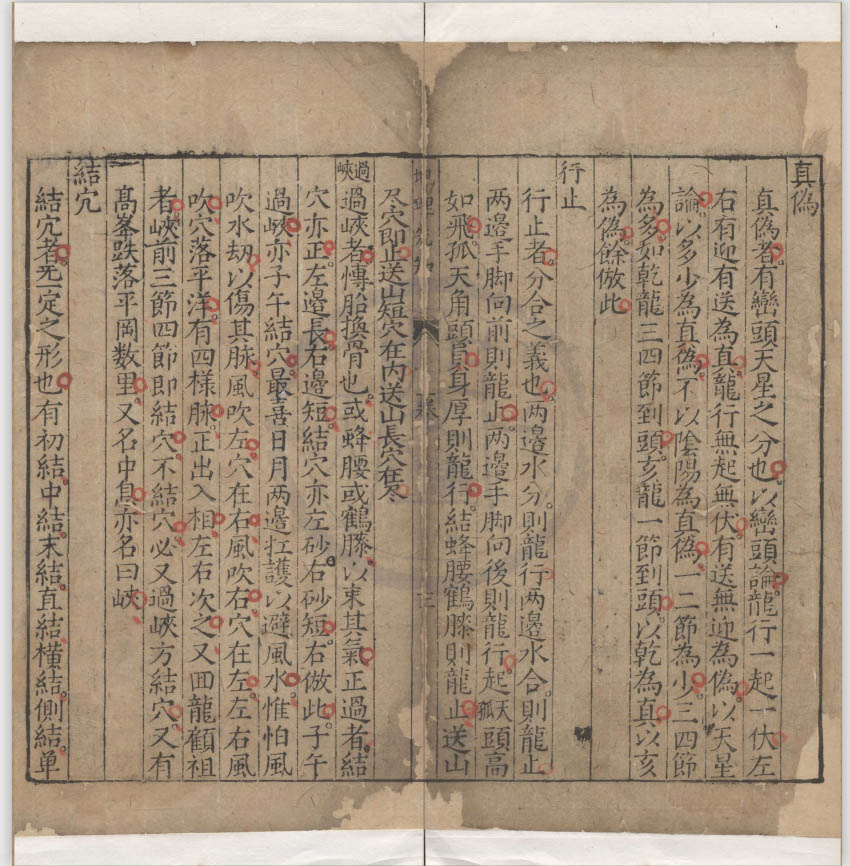 真偽
真偽者有巒頭天星之分也以巒頭論龍行一起一伏左
右有迎有送為真龍行無起無伏有送無迎為偽以天星
論以多少為真偽不以陰陽為真偽一二節為少三四節
為多如乾龍三四節到頭亥龍一節到頭以乾為真以亥
為偽餘倣此
行止
行止者分合之義也两邊水分則龍行两邊水合則龍止
两邊手脚向前則龍止两邊手脚向後則龍行起天狐頭高
如飛孤天角頭肩身厚則龍行結蜂腰鶴膝則龍止送山
尽穴即止送山短穴在内送山長穴在尽
過峽
過峽者慱船換骨也或蜂腰或鶴膝以束其氣正過者結
穴亦正左邊長右邊短結穴亦左砂右砂短右倣此子午
過峽亦子午結穴最喜日月两邊扛護以避風水惟怕風
吹水刼以傷其脉風吹左穴在右風吹右穴在左左右風
吹穴落平洋有四樣脉正出入相左右次之又囬龍顧祖
者峽前三節四節即結穴不結穴必又過峽方結穴又有
髙峯跌落平岡数里又名中息亦名曰峽
結穴
結穴者无一定之形也有初結中結末結直結横結側結单